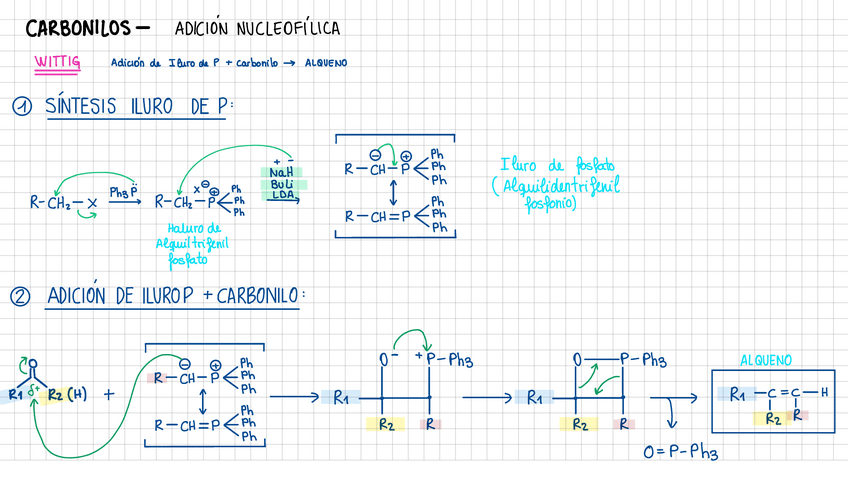 CARBONILOS — ADICIÓN NUCLEOFÍLICA
WITTIG Adición de Iluro de P + Carbonilo → ALQUENO
① SÍNTESIS ILURO DE P:
R-CH₂-X Ph₃P̈ R-CH₂-P⊕ X⊖ Ph Ph Ph
+ -
NaH
BuLi
LDA
R-CH-P ⊖ ⊕ Ph Ph Ph
R-CH=P Ph Ph Ph
Haluro de
Alquiltrifenil
fosfato
Iluro de fosfato
(Alquilidentrifenil
fosfonio)
② ADICIÓN DE ILURO P + CARBONILO:
O
R1 δ+ R2 (H) +
R-CH-P ⊖ ⊕ Ph Ph Ph
R-CH=P Ph Ph Ph
O⁻ ⁺P-Ph3
R1
R2 R
O-P-Ph3
R1
R2 R
O=P-Ph3
ALQUENO
R1-C=C-H
R2 R